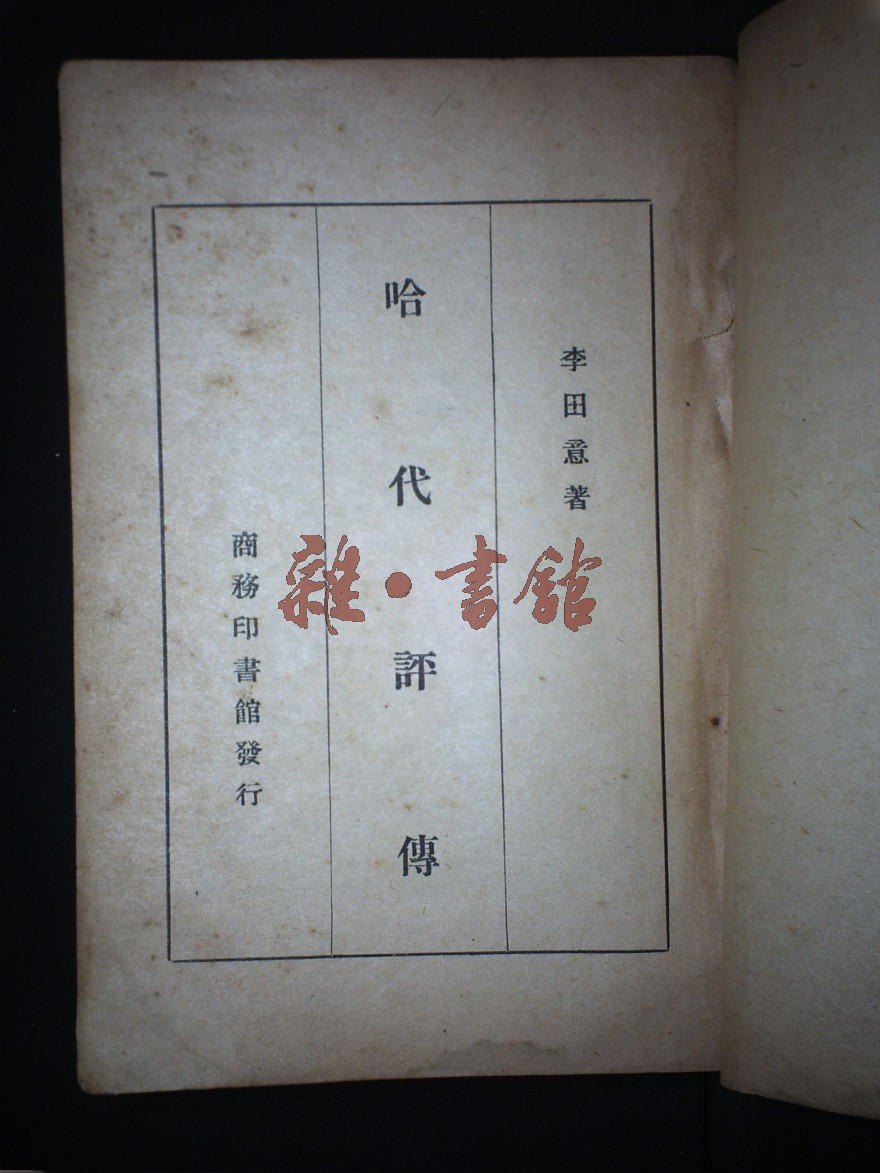 李田意著
哈代評傳
商務印書館發行
雜·書館